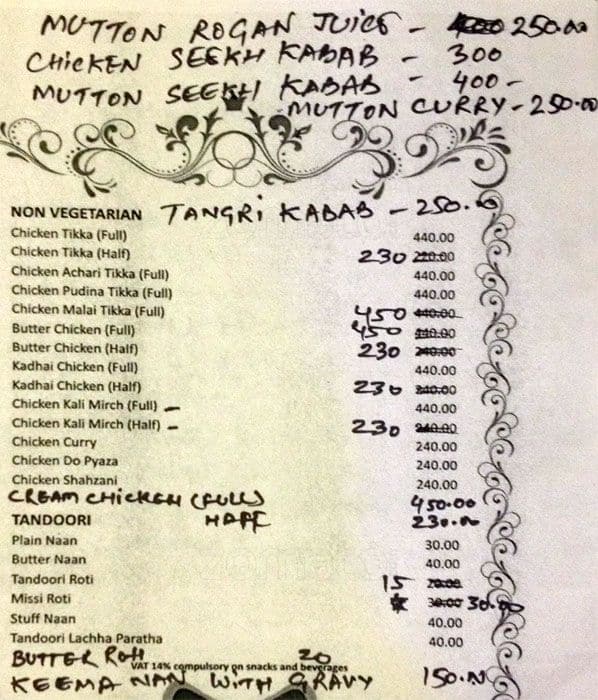 MUTTON ROGAN JUICE - 400 250.00
CHICKEN SEEKH KABAB - 300
MUTTON SEEKH KABAB - 400 -
MUTTON CURRY - 250.00
NON VEGETARIAN TANGRI KABAB - 250.00
Chicken Tikka (Full) 440.00
Chicken Tikka (Half) 230 220.00
Chicken Achari Tikka (Full) 440.00
Chicken Pudina Tikka (Full) 440.00
Chicken Malai Tikka (Full) 450 440.00
Butter Chicken (Full) 450 440.00
Butter Chicken (Half) 230 240.00
Kadhai Chicken (Full) 440.00
Kadhai Chicken (Half) 230 240.00
Chicken Kali Mirch (Full) - 440.00
Chicken Kali Mirch (Half) - 230 240.00
Chicken Curry 240.00
Chicken Do Pyaza 240.00
Chicken Shahzani 240.00
CREAM CHICKEN (FULL) 450.00
TANDOORI HAFF 230.00
Plain Naan 30.00
Butter Naan 40.00
Tandoori Roti 15 20.00
Missi Roti 30.00 30.00
Stuff Naan 40.00
Tandoori Lachha Paratha 40.00
BUTTER ROTI 20
VAT 14% compulsory on snacks and beverages
KEEMA NAN WITH GRAVY 150.00